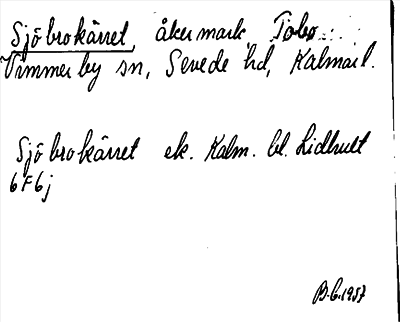 Sjöbrokärret, åkermark, Tobo
Vimmerby sn, Sevede hd, Kalmar l.
Sjöbrokärret ek. Kalm. bl. Lidhult
6F6j
B.G. 1957